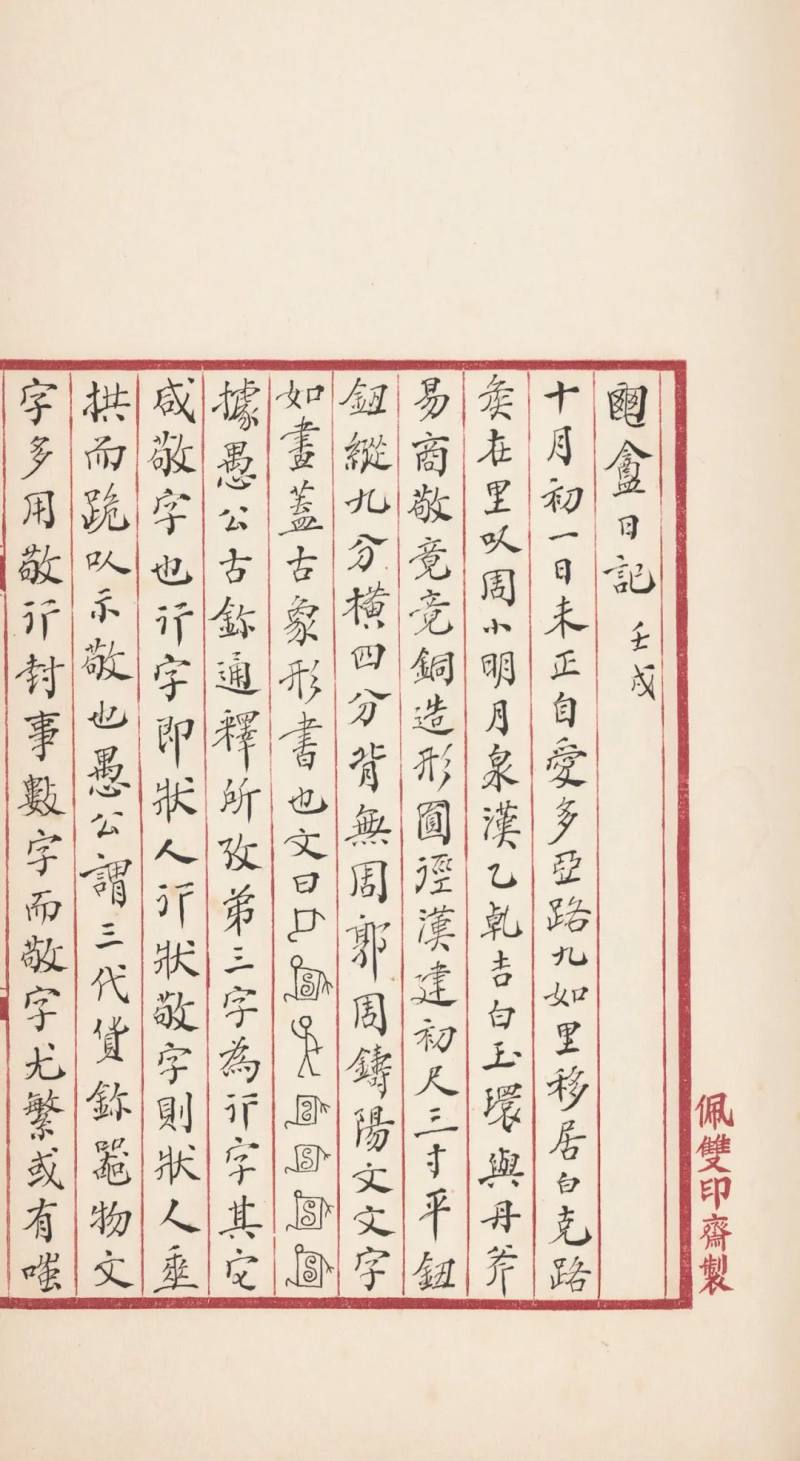 盦日記 壬戌
十月初一日未正自愛多亞路九如里移居白克路
矦在里㕥周小明月泉漢乙乹吉白玉環與丹斧
易商敬竟竟銅造形圓徑漢建初尺三寸平鈕
鈕縱九分橫四分背無周郭周鑄陽文文字
如畫蓋古象形書也文曰
據愚公古鉨通釋所攷弟三字為行字其它
咸敬字也行字即狀人行狀敬字則狀人垂
拱而跪㕥示敬也愚公謂三代貨鉨噐物文
字多用敬行封事數字而敬字尤繁或有嗤
佩雙印齋製